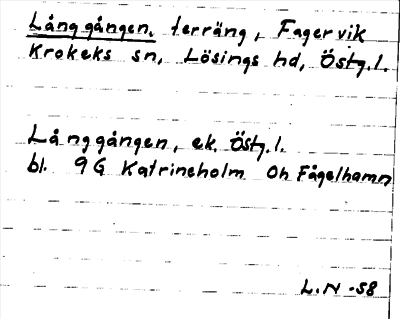 Långgången, terräng, Fagervik
Krokeks sn, Lösings hd, Östg.l.
Långgången, ek. Östg.l.
bl. 9G Katrineholm Oh Fågelhamn
L.N -58